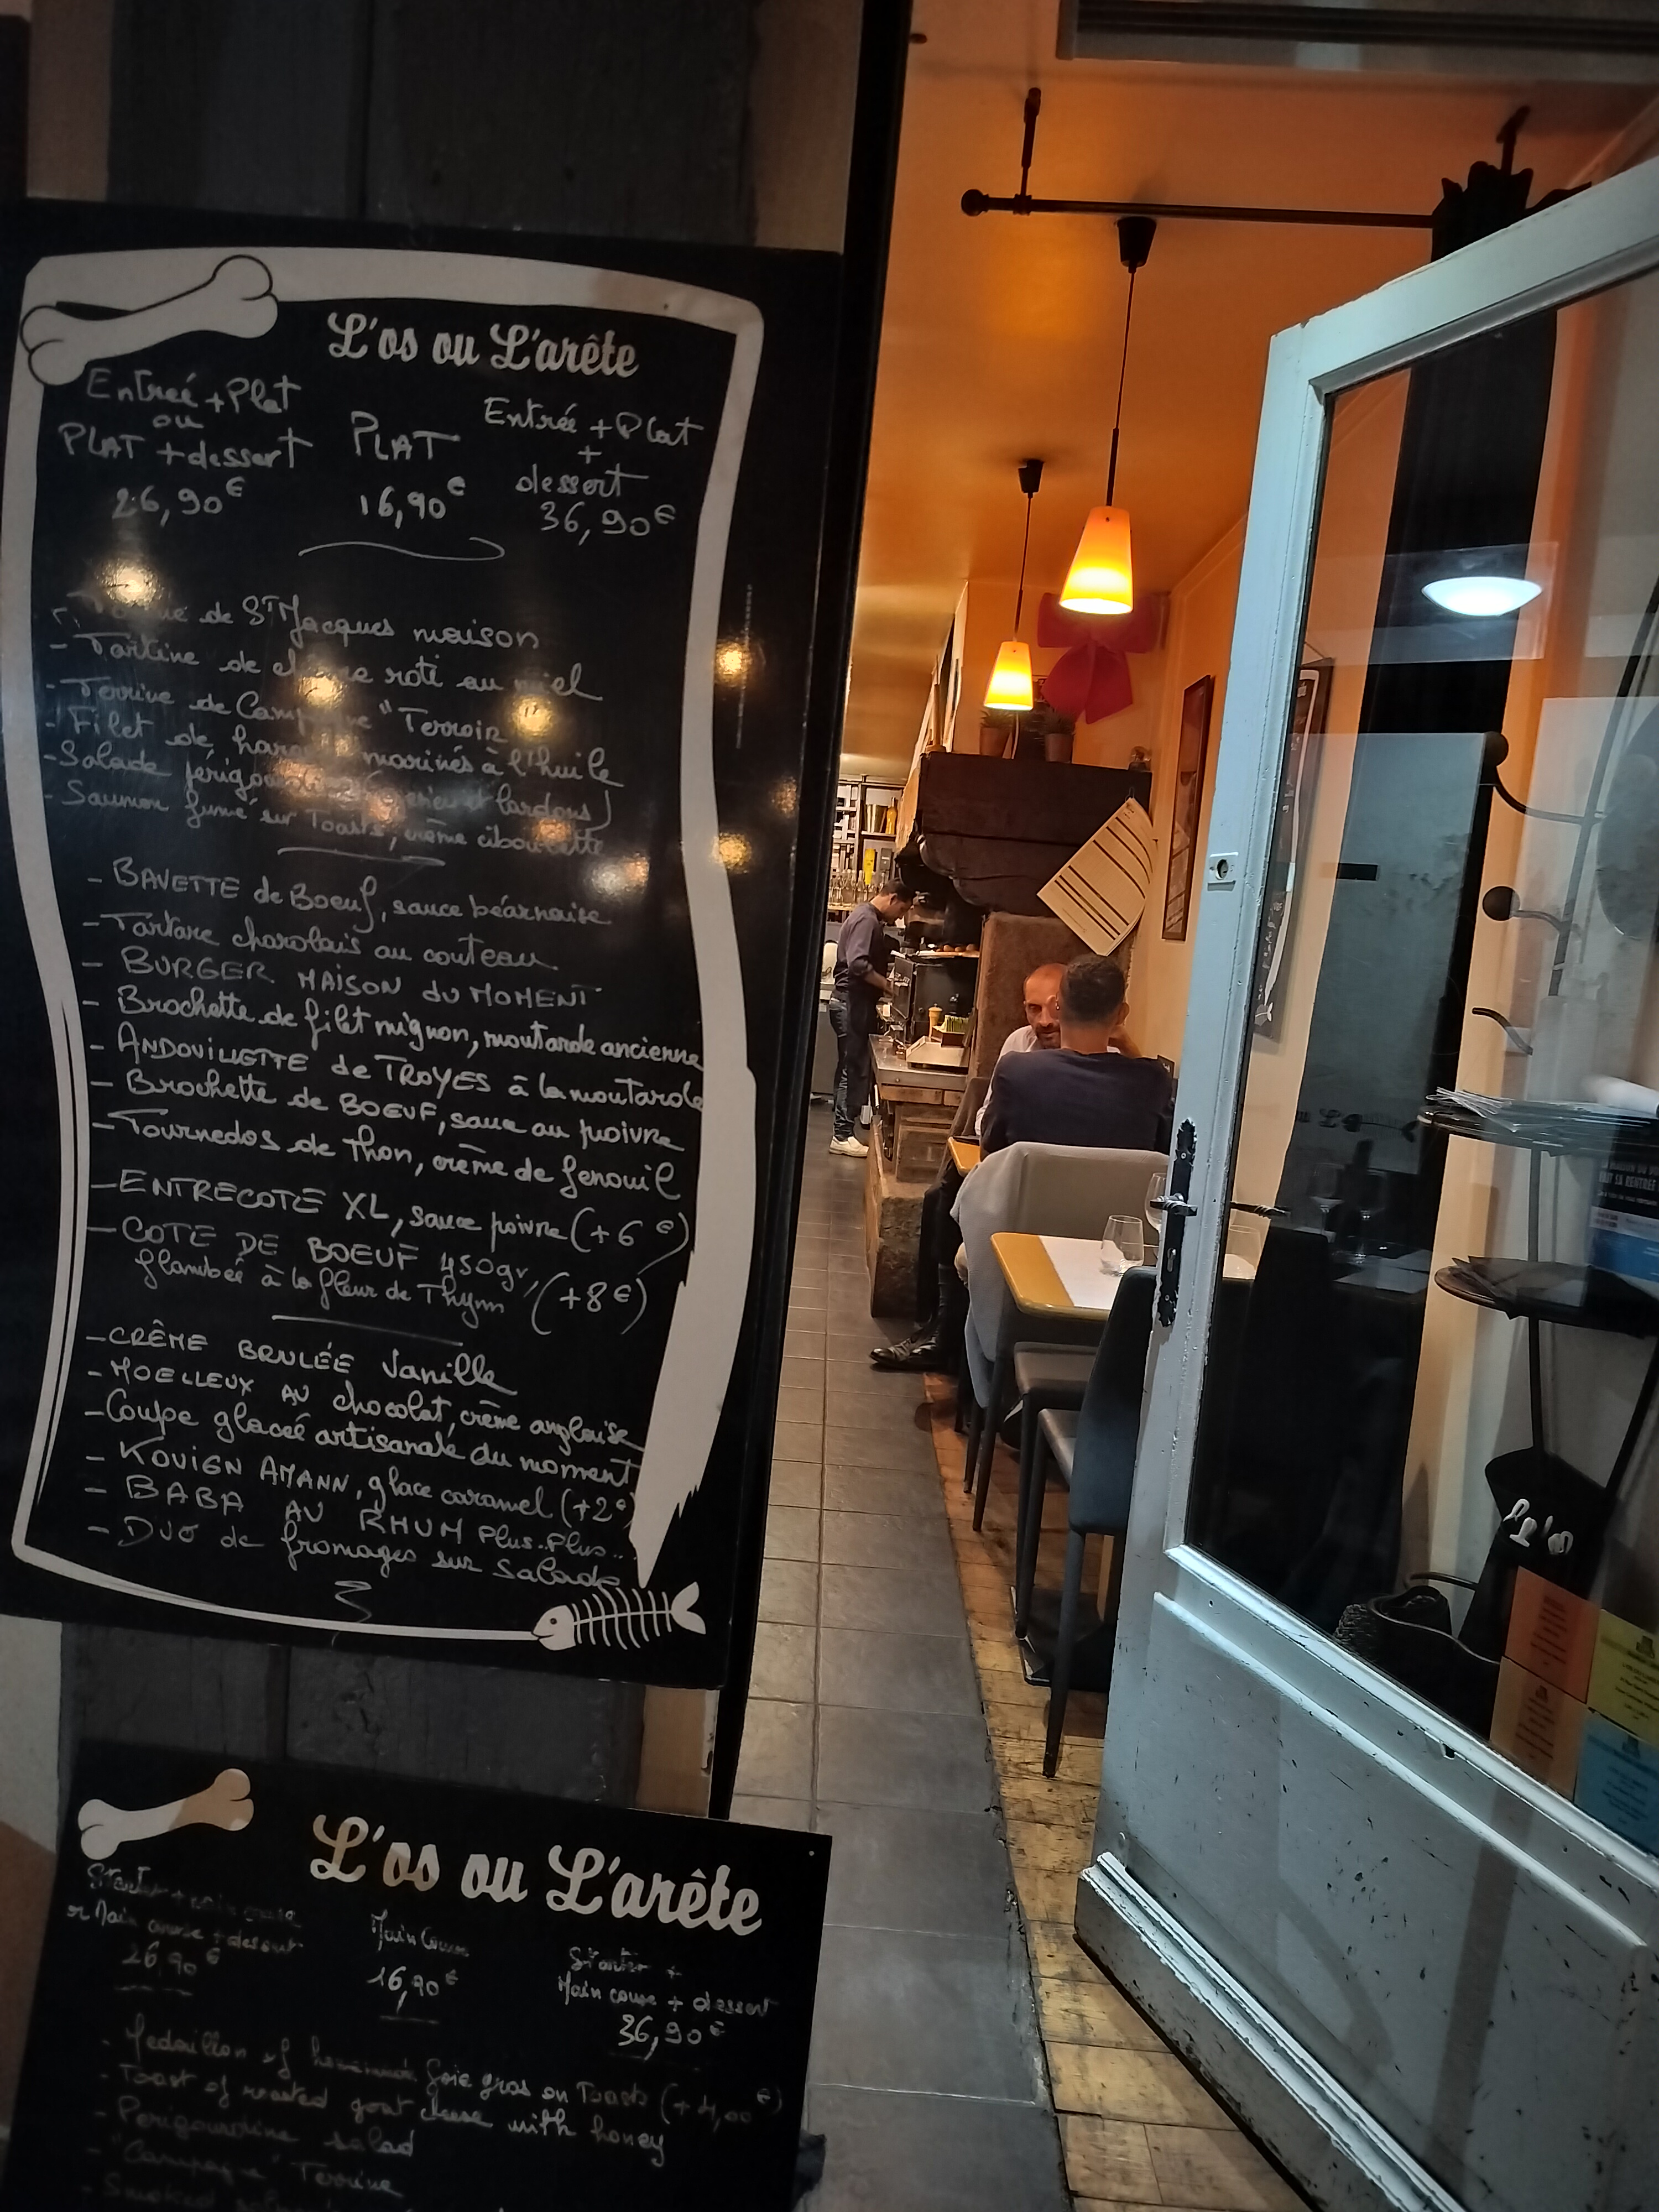 L'os ou L'arête
Entreé + Plat
ou
PLAT + dessert
26,90€
PLAT
16,90€
Entrée + Plat
+
dessert
36,90€
de St Jacques maison
- Tartine de roti au miel
- Terrine de Campagne "Terroir"
- Filet de marinés à l'huile
- Salade et lardons)
- Saumon fumé sur Toasts, crème ciboulette
- BAVETTE de Boeuf, sauce béarnaise
- Tartare charolais au couteau
- BURGER MAISON du MOMENT
- Brochette de filet mignon, moutarde ancienne
- ANDOUILLETTE de TROYES à la moutarde
- Brochette de BOEUF, sauce au poivre
- Tournedos de Thon, crème de fenouil
- ENTRECOTE XL, sauce poivre (+6€)
- COTE DE BOEUF 450gr,
flambeé à la fleur de Thym (+8€)
- CRÊME BRULÉE Vanille
- MOELLEUX AU chocolat, crème anglaise
- Coupe glaceé artisanale du moment
- KOUIGN AMANN, glace caramel (+2€)
- BABA AU RHUM Plus..Plus...
- DUO de fromages sur Salade
L'os ou L'arête
Starter + main course
or Main course + dessert
26,90€
Main Course
16,90€
Starter +
Main course + dessert
36,90€
- Medaillon of homemade foie gras on Toasts (+4,00€)
- Toast of roasted goat cheese with honey
- Perigourdine salad
- "Campagne" Terrine
- Smoked
L'os